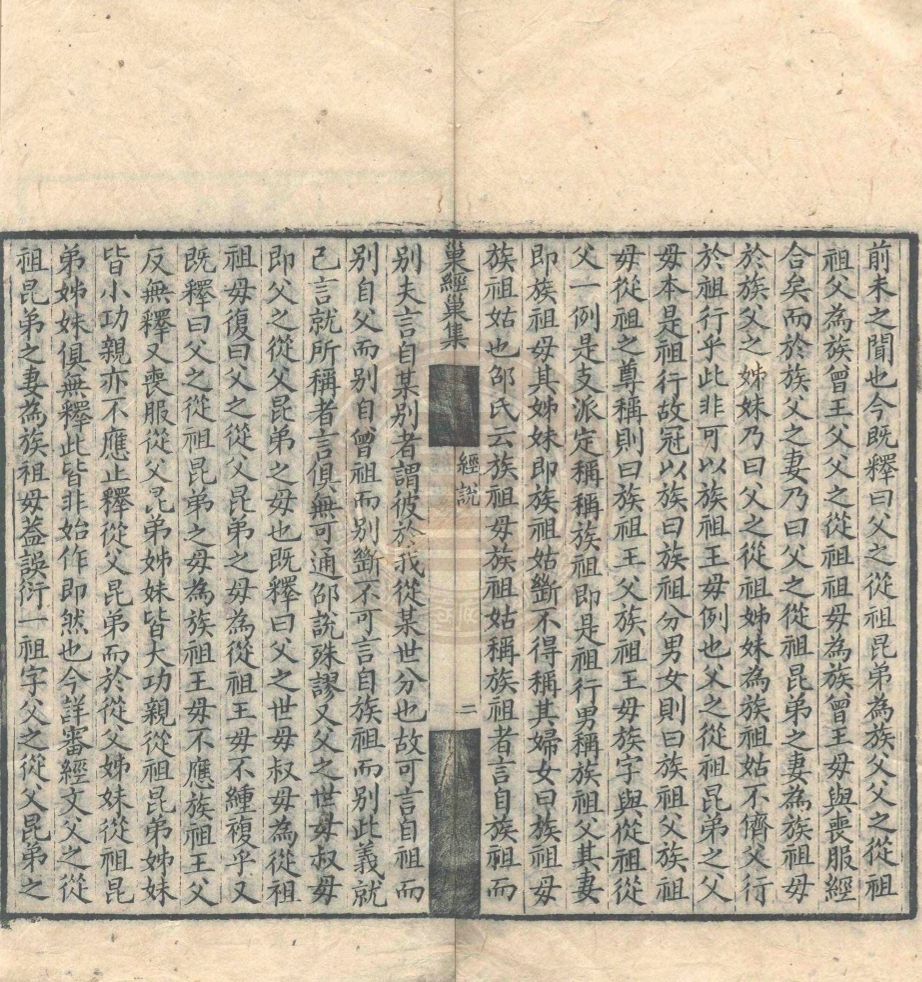 前未之聞也今既釋曰父之從祖昆弟為族父父之從祖
祖父為族曾王父父之從祖祖母為族曾王母與喪服經
合矣而於族父之妻乃曰父之從祖昆弟之妻為族祖母
於族父之姊妹乃曰父之從祖姊妹為族祖姑不儕父行
於祖行乎此非可以族祖王母例也父之從祖昆弟之父
母本是祖行故冠以族曰族祖分男女則曰族祖父族祖
母從祖之尊稱則曰族祖王父族祖王母族字與從祖從
父一例是支派定稱稱族祖即是祖行男稱族祖父其妻
即族祖母其姊妹即族祖姑斷不得稱其婦女曰族祖母
族祖姑也邵氏云族祖母族祖姑稱族祖者言自族祖而
巢經巢集
經說
二
別夫言自某別者謂彼於我從某世分也故可言自祖而
別自父而別自曾祖而別斷不可言自族祖而別此義就
己言就所稱者言俱無可通邵說殊謬又父之世母叔母
即父之從父昆弟之母也既釋曰父之世母叔母為從祖
祖母復曰父之從父昆弟之母為從祖王母不緟複乎又
既釋曰父之從祖昆弟之母為族祖王母不應族祖王父
反無釋又喪服從父昆弟姊妹皆大功親從祖昆弟姊妹
皆小功親亦不應止釋從父昆弟而於從父姊妹從祖昆
弟姊妹俱無釋此皆非始作即然也今詳審經文父之從
祖昆弟之妻為族祖母葢誤衍一祖字父之從父昆弟之